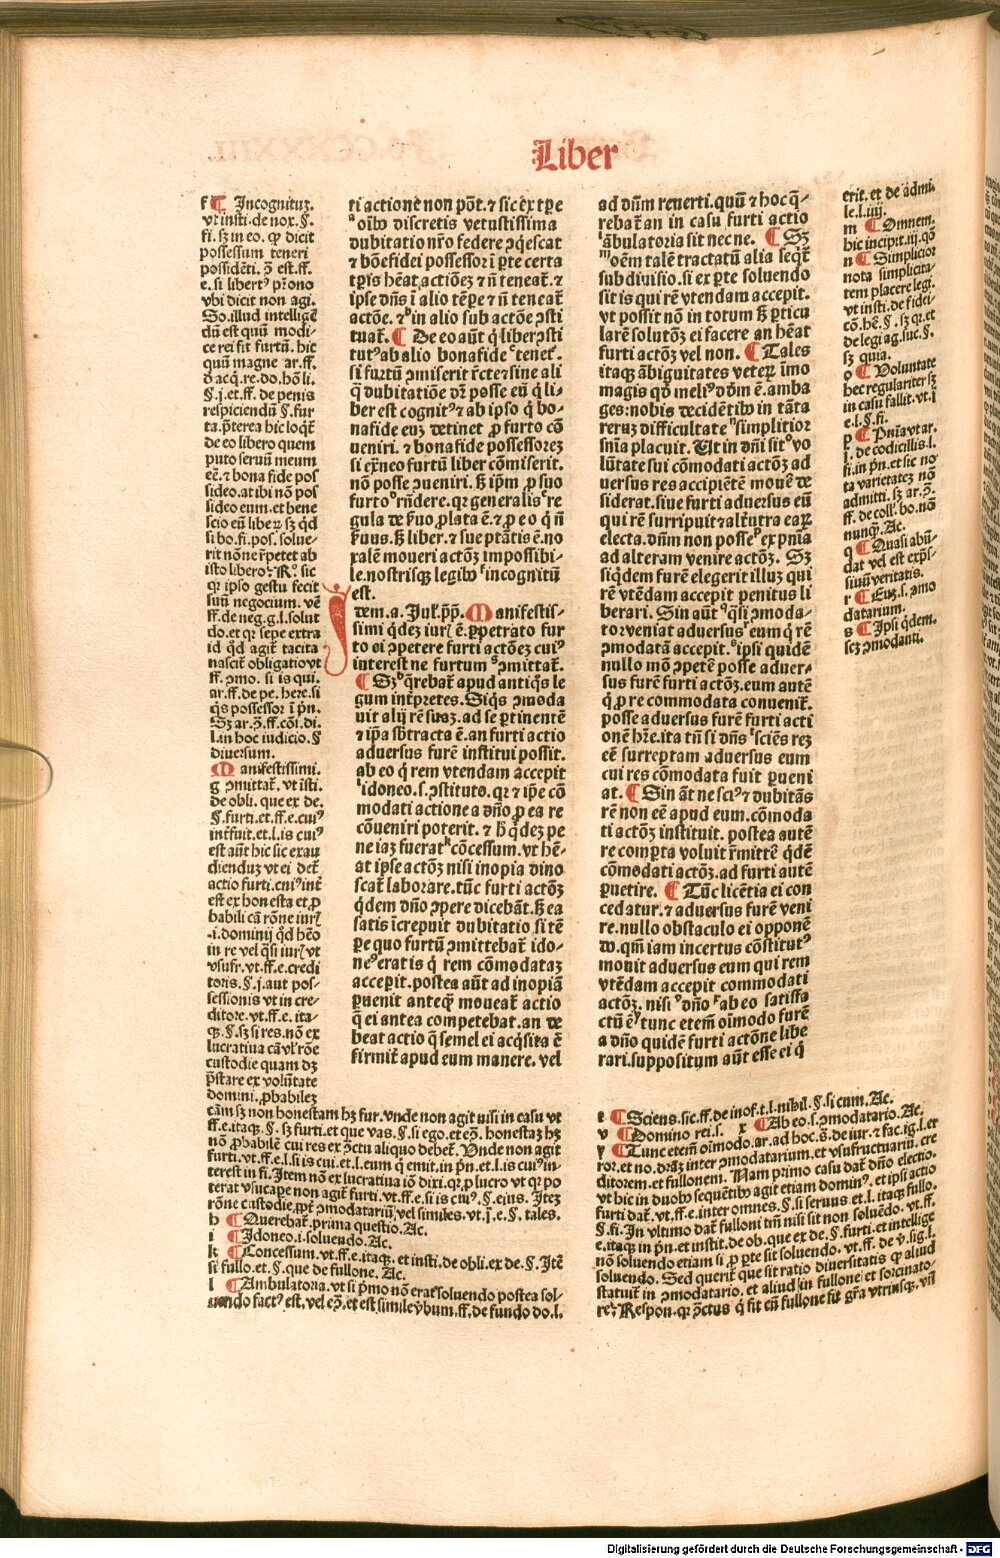 Liber
f ¶ Incognituz.
vt insti. de nox. §.
fi. sz in eo. ꝙ dicit
possessum teneri
possidēti. ꝯ̄ est. ff.
e. si libertꝰ pr̄ono
vbi dicit non agi.
So. illud intellige
dū est quū modi-
ce rei fit furtū. hic
quū magne ar. ff.
d̄ acq̄. re. do. hōi.
§. j. et. ff. de penis
respiciendū §. fur
ta. p̄terea hic loqt̄
de eo libero quem
puto seruū meum
eē. ⁊ bona fide pos
sideo. at ibi nō pos
sideo eum. et bene
scio eū liberꝫ sz qd̄
si bo. fi. pos. solue-
rit nōne r̄petet ab
isto libero: R̄. sic
qꝛ ipso gestu fecit
suū negocium. vē
ff. de neg. g. l. solut
do. et qꝛ sepe extra
id qd̄ agit̄ tacita
nascit̄ obligatio vt
ff. ꝯmo. si is qui.
ar. ff. de pe. here. si
qs possessor i pn̄.
Sz ar. ꝯ̄. ff. cōi. di.
l. in hoc iudicio. §
diuersum.
Manifestissimi.
g ꝯmittat̄. vt isti.
de obli. que ex de.
§. furti. et. ff. e. cuiꝰ
int̄fuit. et. l. is cuiꝰ
est aūt hic sic exau
diendū vt ei det̄
actio furti. cuiꝰ int̄
est ex honesta et. ꝓ
babili cā rōne iurꝭ
.i. dominij qd̄ hēo
in re vel qsi iurꝭ vt
vsufr. vt. ff. e. credi
toris. §. j. aut pos-
sessionis vt in cre-
ditore. vt. ff. e. ita-
qꝫ. §. sz si res. nō ex
lucratiua cā vl̄ rōe
custodie quam dz
p̄stare ex volūtate
domini. ꝓbabilez
cām sz non honestam hz fur. vnde non agit nisi in casu vt
ff. e. itaqꝫ. §. sz furti. et que vas. §. si ego. et eꝯ̄. honestaz hz
nō ꝓbabilē cui res ex ꝯ̄ctu aliquo debet̄. Vnde non agit
furti. vt. ff. e. l. si is cui. et. l. eum q̄ emit. in pn̄. et. l. is cuiꝰ in-
terest in fi. Item nō ex lucratiua iō dixi. qꝛ. ꝓ lucro vt qꝛ po
terat vsucape non agit̄ furti. vt. ff. e. si is cuiꝰ. §. eius. Itez
rōne custodie. ꝓpt̄ ꝯmodatariū. vel similes. vt. j. e. §. tales.
h ¶ Querebat̄. prima questio. Ac.
i ¶ Idoneo. i. soluendo. Ac.
k ¶ Concessum. vt. ff. e. itaqꝫ. et insti. de obli. ex de. §. Itē
si fullo. et. §. que de fullone. Ac.
l ¶ Ambulatoria. vt si p̄mo nō erat̄ soluendo postea sol-
uendo factꝰ est. vel eꝯ̄. et est simile v̄bum. ff. de fundo do. l.
ti actione non pōt. ⁊ sic ex tꝑe
oīb discretis vetustissima
dubitatio nr̄o federe ꝯq̄escat
⁊ bōefidei possessor i ꝑte certa
tꝑis hēat actiōez ⁊ n̄ teneat̄. ⁊
ipse dn̄s i alio tēꝑe ⁊ n̄ teneat̄
actōe. ⁊ in alio sub actōe ꝯsti
tuat̄. ¶ De eo aūt q̄ liber ꝯsti
tutꝰ ab alio bona fide tenet̄.
si furtū ꝯmiserit r̄cte ⁊ sine ali
q̄ dubitatiōe dz posse eū q̄ li-
ber est cognitꝰ ⁊ ab ipso q̄ bo-
nafide euz detinet ꝓ furto cō
ueniri. ⁊ bonafide possessorez
si ex̄neo furtū liber cōmiserit.
nō posse ꝯueniri. sz ip̄m ꝓ suo
furto rn̄dere. qꝛ generalis re
gula de ẜuo ꝓlata ē. ⁊ ꝓ eo q̄ n̄
ẜuus. sz liber. ⁊ sue ptātis ē. no
xalem moueri actōz impossibi-
le. nostrisqꝫ legib incognitū
est.
Idem. a. Jul'. pp̄. Manifestis-
simi q̄dez iurꝭ ē. ꝑpetrato fur
to ei ꝯpetere furti actōez cuiꝰ
interest ne furtum ꝯmittat̄.
¶ Sz q̄rebat̄ apud antiq̄s le
gum int̄pretes. Siq̄s ꝯmoda
uit alij rē suaz. ad se ꝑtinentē
⁊ ip̄a sb̄tracta ē. an furti actio
aduersus furē institui possit.
ab eo q̄ rem vtendam accepit
idoneo. s. ꝯstituto. qꝛ ⁊ ip̄e cō
modati actione a dn̄o ꝓ ea re
cōueniri poterit. ⁊ h̄ q̄dez pe
ne iaz fuerat cōcessum. vt hē-
at ipse actōz nisi inopia dino
scat̄ laborare. tūc furti actōz
q̄dem dn̄o ꝯpere dicebāt. sz ea
satis īcrepuit dubitatio si tē
ꝑe quo furtū ꝯmittebat̄ ido-
neꝰ erat is q̄ rem cōmodataz
accepit. postea aūt ad inopiā
ꝑuenit anteq̄ꝫ moueat̄ actio
q̄ ei antea competebat. an de
beat actio q̄ semel ei acq̄sita ē
firmit̄ apud eum manere. vel
ad dūm reuerti. quū ⁊ hoc q̄-
rebat̄ an in casu furti actio
ābulatoria sit necne. ¶ Sz
oēm talē tractatū alia seqt̄
subdiuisio. si ex ꝑte soluendo
sit is qui rē vtendam accepit.
vt possit nō in totum sz ꝑticu
larē solutōz ei facere an hēat
furti actōz vel non. ¶ Tales
itaqꝫ ābiguitates veterꝫ imo
magis qd̄ meliꝰ dd̄m ē. amba
ges: nobis decidētib in tāta
reruz difficultate simplitior
sn̄ia placuit. Ut in dn̄i sit vo
lūtate sui cōmodati actōz ad
uersus res accipiētē mouē de
siderat. siue furti aduersus eū
qui rē surripuit ⁊ alt̄utra earꝫ
electa. dn̄m non posse ex pn̄ia
ad alteram venire actōz. Sz
siq̄dem furē elegerit illuz qui
rē vtēdam accepit penitus li
berari. Sin aūt q̄si ꝯmoda-
tor veniat aduersus eum q̄ rē
ꝯmodatā accepit. ipsi quidē
nullo mō ꝯpetē posse aduer-
sus furē furti actōz. eum autē
q̄ ꝓ re commodata conuenit̄.
posse aduersus furē furti acti
onē hr̄e. ita tn̄ si dn̄s sciēs rez
eē surreptam aduersus eum
cui res cōmodata fuit ꝑueni
at. ¶ Sin āt nesciꝰ ⁊ dubitās
rē non eē apud eum. cōmoda
ti actōz instituit. postea autē
re comꝑta voluit r̄mitte q̄dē
cōmodati actōz. ad furti autē
ꝑuetire. ¶ Tūc licētia ei con
cedatur. ⁊ aduersus furē veni
re. nullo obstaculo ei opponē
do. qm̄ iam incertus cōstitutꝰ
mouit aduersus eum qui rem
vtēdam accepit commodati
actōz. nisi dn̄o ab eo satisfa
ctū ē tunc etem̄ oīmodo furē
a dn̄o quidē furti actōne libe
rari. suppositum aūt esse ei q̄
erit. et de admi.
le. l. iiij.
m ¶ Omnem.
hic incipit. iij. qō
n ¶ Simplicior
nota simplicita-
tem placere legi.
vt insti. de fidei-
cō. hē. §. sz qꝛ. et
de legi ag. suc. §.
sz quia.
o ¶ Voluntate
hec regulariter sz
in casu fallit. vt. j
e. l. §. fi.
p ¶ Pn̄ia vt ar.
j. de codicillis. l.
fi. in pn̄. et sic no
ta varietatez nō
admitti. sz ar. ꝯ̄.
ff. de coll. bo. nō
nunqꝫ. Ac.
q ¶ Quasi abū-
dat vel est exp̄s-
siuū veritatis.
r ¶ Euꝫ. s. ꝯmo
datarium.
s ¶ Ipsi q̄dem.
sez ꝯmodanti.
t ¶ Sciens. sic. ff. de inof. t. l. nihil. §. si cum. Ac.
v ¶ Domino rei. s. x ¶ Ab eo. s. ꝯmodatario. Ac.
y ¶ Tunc etem̄ oīmodo. ar. ad hoc. s̄. de iur. ⁊ fac. ig. l. er
ror. et no. dr̄az inter ꝯmodatarium. et vsufructuariū. cre
ditorem. et fullonem. Nam primo casu dat̄ dn̄o electio.
vt hic in duob sequētib agit etiam dominꝰ. et ipsi actio
furti dat̄. vt. ff. e. inter omnes. §. si seruus et. l. itaqꝫ fullo.
§. fi. In vltimo dat̄ fulloni tn̄ nisi sit non soluēdo. vt. ff.
e. itaqꝫ in pn̄. et instit. de ob. que ex de. §. furti. et intellige
nō soluendo etiam si ꝓ ꝑte sit soluendo. vt. ff. de v̄. sig. l.
soluendo. Sed querit̄ que sit ratio diuersitatis qꝛ aliud
statuit̄ in ꝯmodatario. et aliud in fullone et sorcinato-
re: Respon. qꝛ ꝯ̄ctus q̄ fit cū fullone fit gr̄a vtriusqꝫ. vn̄
Digitalisierung gefördert durch die Deutsche Forschungsgemeinschaft - DFG